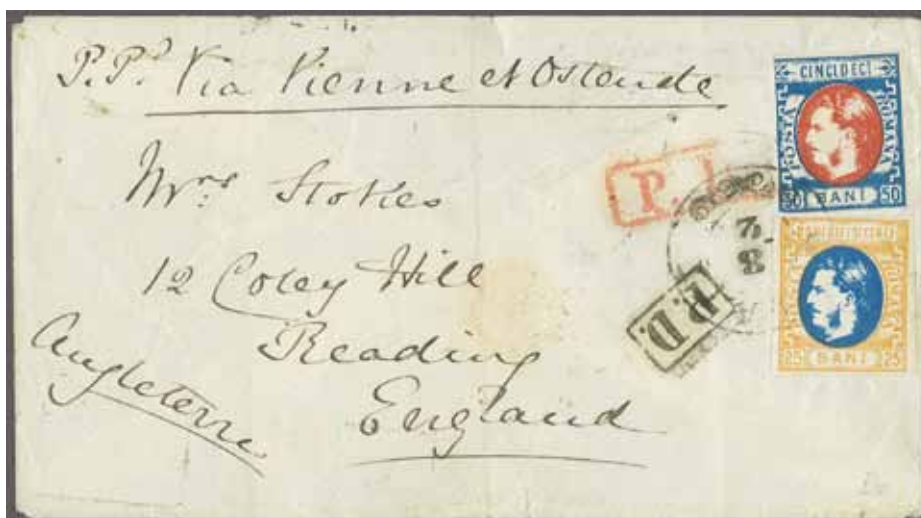 P.P. Via Vienne et Ostende
Mrs Stokes
12 Coley Hill
Reading
England
Angleterre
P.
P.D.
7
8
CINCI DECI
POSTA ROMANA
50 BANI 50
25 BANI 25